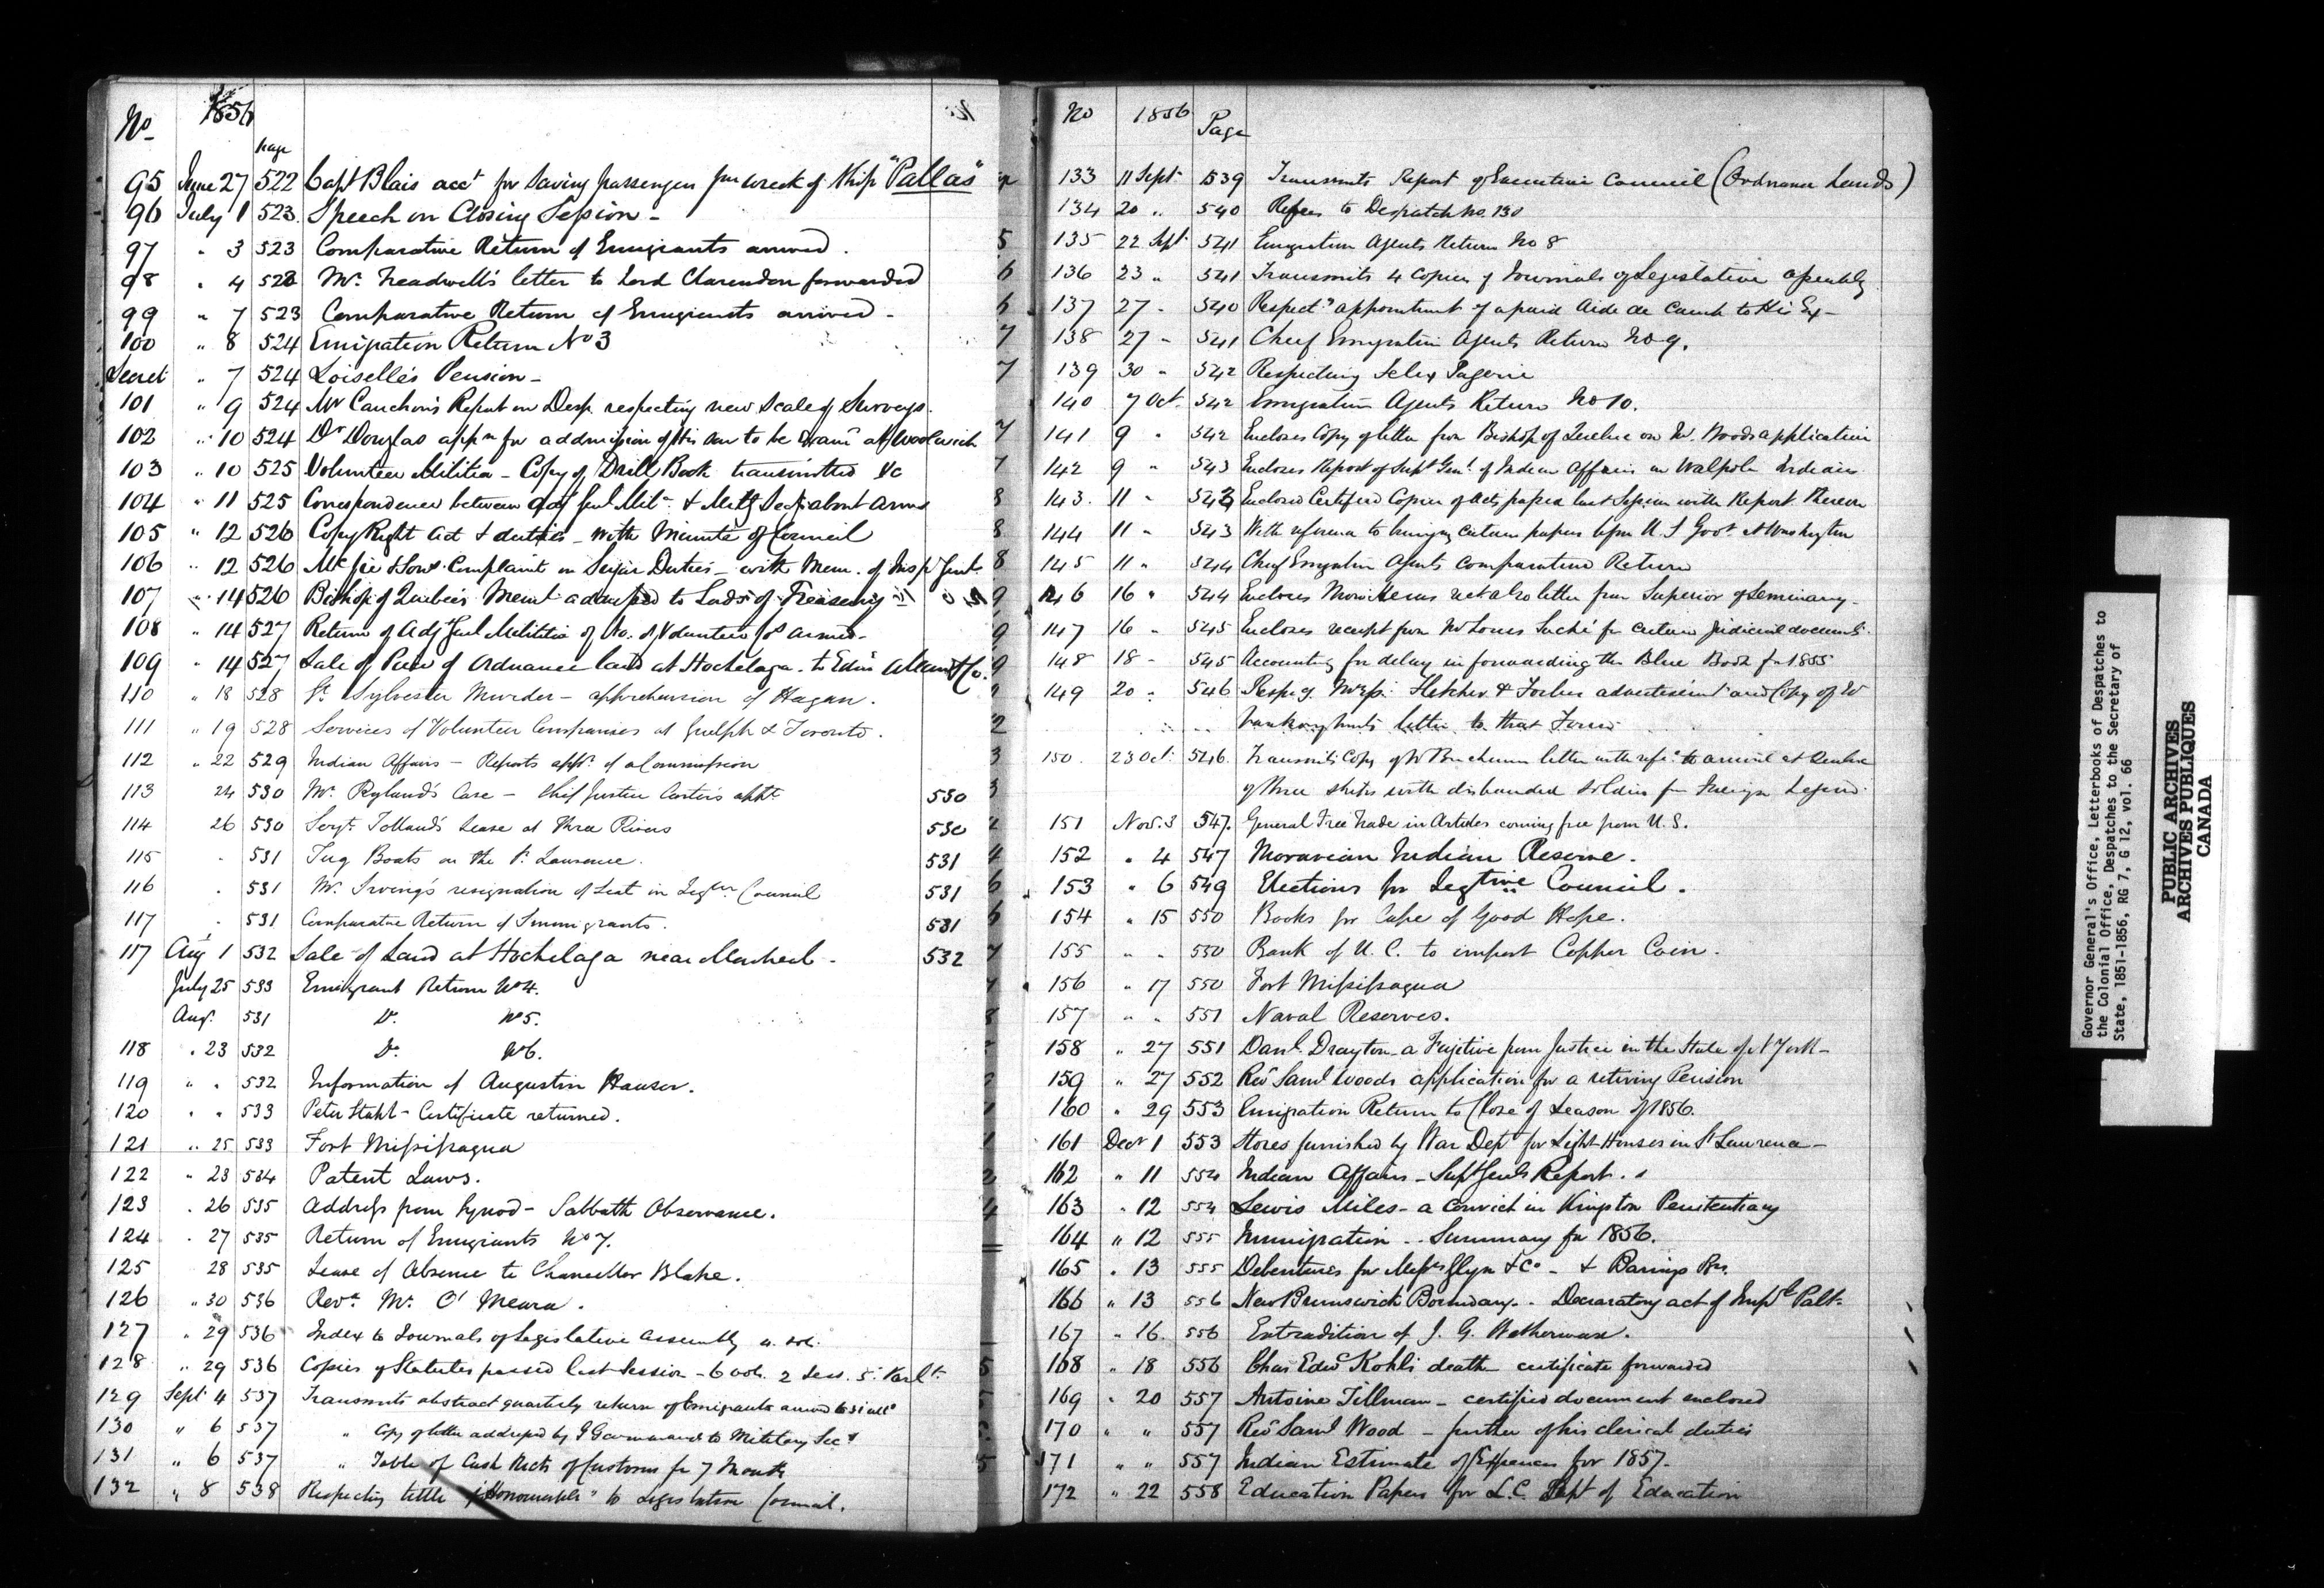 No 1856 page
95 June 27 522 Capt Blais acct for saving passengers from wreck of Ship "Pallas"
96 July 1 523 Speech on Closing Session -
97 " 3 523 Comparative Return of Emigrants arrived.
98 " 4 523 Mr. Treadwell's letter to Lord Clarendon forwarded
99 " 7 523 Comparative Return of Emigrants arrived -
100 " 8 524 Emigration Return No 3
Secret " 7 524 Loiselle's Pension -
101 " 9 524 Mr Cauchon's Report on Desp. respecting new Scale of Surveys.
102 " 10 524 Dr Douglas appn for addmission of His son to be Exam at Woolwich
103 " 10 525 Volunteer Militia - Copy of Drill Book transmitted &c
104 " 11 525 Correspondence between Adj Genl Mila & Mility Secy about Arms
105 " 12 526 Copy Right Act & duties - with Minute of Council
106 " 12 526 Complaint on Sugar Duties - with Mem. of Insp Genl.
107 " 14 526 Bishop of Quebec's Meml addressed to Lords of Treasury
108 " 14 527 Return of Adj Genl Militia of No. of Volunteers armed -
109 " 14 527 Sale of Piece of Ordnance land at Hochelaga - to Edwd & Co.
110 " 18 528 St Sylvester Murder - apprehension of Hagan.
111 " 19 528 Services of Volunteer Companies at Guelph & Toronto.
112 " 22 529 Indian Affairs - Reports appt. of a Commission
113 24 530 Mr Ryland's Case - Chief Justice Carter's appt. 530
114 26 530 Sergt. Tolland's Lease at Three Rivers 530
115 " 531 Tug Boats on the St Lawrence. 531
116 " 531 Mr. Irving's resignation of Seat in Legtve. Council 531
117 " 531 Comparative Return of Immigrants. 531
117 Aug 1 532 Sale of Land at Hochelaga near Montreal - 532
July 25 533 Emigrant Return No 4.
Aug. 531 Do. No 5.
118 " 23 532 Do. No 6.
119 " " 532 Information of Augustin Hauser.
120 " " 533 Peter Stahl - Certificate returned.
121 " 25 533 Fort Missisagua
122 " 23 534 Patent Laws.
123 " 26 535 Address from Synod - Sabbath Observance.
124 " 27 535 Return of Emigrants No 7.
125 28 535 Leave of Absence to Chancellor Blake.
126 " 30 536 Revd. Mr. O'Meara.
127 " 29 536 Index to Journals of Legislative Assembly 4. vol.
128 " 29 536 Copies of Statutes passed last Session - 6 vols. 2 Sess. 5. Parlt.
129 Sept 4 537 Transmits abstract quarterly return of Emigrants arrived to 31
130 " 6 537 " Copy of letter addressed by to Military Secy
131 " 6 537 " Table of Cash Rects of Customs for 7 Months
132 " 8 538 Respecting tittle of "Honourable" to Legislative Council.
No 1856 Page
133 11 Sept. 539 Transmits Report of Executive Council (Ordnance Lands)
134 20 " 540 Refers to Despatch No. 130
135 22 Sept. 541 Emigration Agents Return No 8
136 23 " 541 Transmits 4 Copies of Journals of Legislative Assembly
137 27 " 540 Respectg appointment of a paid Aide de Camp to His Ex -
138 27 " 541 Chief Emigration Agents Return No 9.
139 30 " 542 Respecting
140 7 Oct. 542 Emigration Agents Return No 10.
141 9 " 542 Encloses Copy of letter from Bishop of Quebec on Mr. Woods application
142 9 " 543 Encloses Report of Supt Genl. of Indian Affairs on Walpole Indians
143. 11 " 543 Encloses Certified Copies of Acts passed last Session with Report thereon
144 11 " 543 With reference to bringing certain papers before U. S Govt. at Washington
145 11 " 544 Chief Emigration Agents Comparative Return
146 16 " 544 Encloses also letter from Superior of Seminary -
147 16 " 545 Encloses receipt from Mr Louis for certain judicial documents.
148 18 - 545 Accounting for delay in forwarding the Blue Book for 1855
149 20 " 546 Respg. Messrs. Fletcher & advertisement and Copy of Mr
Vankoughnet's letter to that
150. 23 Oct. 546. Transmits Copy of Mr Buchanan letter with refce to arrival at Quebec
of three ships with disbanded Soldiers from Foreign Legion.
151 Nov. 3 547. General Free Trade in Articles coming free from U. S.
152 " 4 547 Moravian Indian Reserve.
153 " 6 549 Elections for Legtive Council.
154 " 15 550 Books for Cape of Good Hope.
155 " " 550 Bank of U. C. to import Copper Coin.
156 " 17 550 Fort Missisagua
157 " " 551 Naval Reserves.
158 " 27 551 Danl. Drayton - a Fugitive from Justice in the State of N York -
159 " 27 552 Revd Saml Woods application for a retiring Pension
160 " 29 553 Emigration Return to Close of Season of 1856.
161 Decr 1 553 Stores furnished by War Dept for Light Houses in St Lawrence -
162 " 11 554 Indian Affairs - Supt Genls Report.
163 " 12 554 Lewis Miles - a Convict in Kingston Penitentiary
164 " 12 555 Immigration - Summary for 1856.
165 " 13 555 Debentures for Messrs Glyn & Co - & Barings Brs.
166 " 13 556 New Brunswick Boundary - Decraratory act of Impl Palt.
167 " 16. 556 Extradition of J. G. Wetherwax.
168 " 18 556 Chas Edwd Kohli death certificate forwarded
169 " 20 557 Antoine Tillman - certified document enclosed
170 " " 557 Revd Saml Wood - further of his clerical duties
171 " " 557 Indian Estimate of Expences for 1857.
172 " 22 558 Education Papers for L.C. Dept of Education
Governor General's Office. Letterbooks of Despatches to
the Colonial Office, Despatches to the Secretary of
State, 1851-1856, RG 7, G 12, vol. 66
PUBLIC ARCHIVES
ARCHIVES PUBLIQUES
CANADA